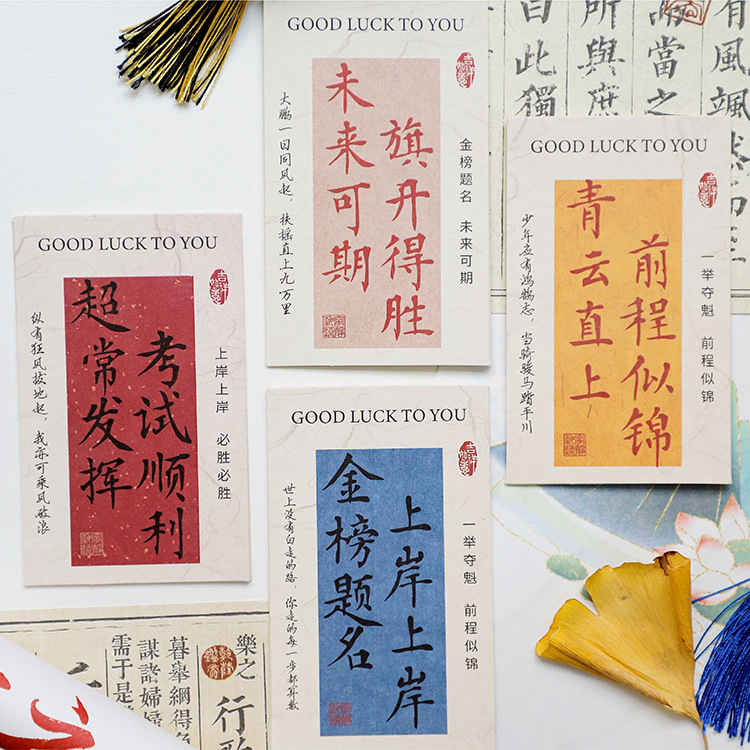 GOOD LUCK TO YOU
金榜题名 未来可期
旗开得胜
未来可期
大鹏一日同风起，扶摇直上九万里
有風颯然而至
當之
所與庶
自此獨
GOOD LUCK TO YOU
一举夺魁 前程似锦
前程似锦
青云直上
少年应有鸿鹄志，当骑骏马踏平川
GOOD LUCK TO YOU
上岸上岸 必胜必胜
考试顺利
超常发挥
纵有狂风拔地起，我亦可乘风破浪
GOOD LUCK TO YOU
一举夺魁 前程似锦
上岸上岸
金榜题名
世上没有白走的路，你走的每一步都算数
樂之
行歌
暮舉網得
謀諸婦婦
需于是